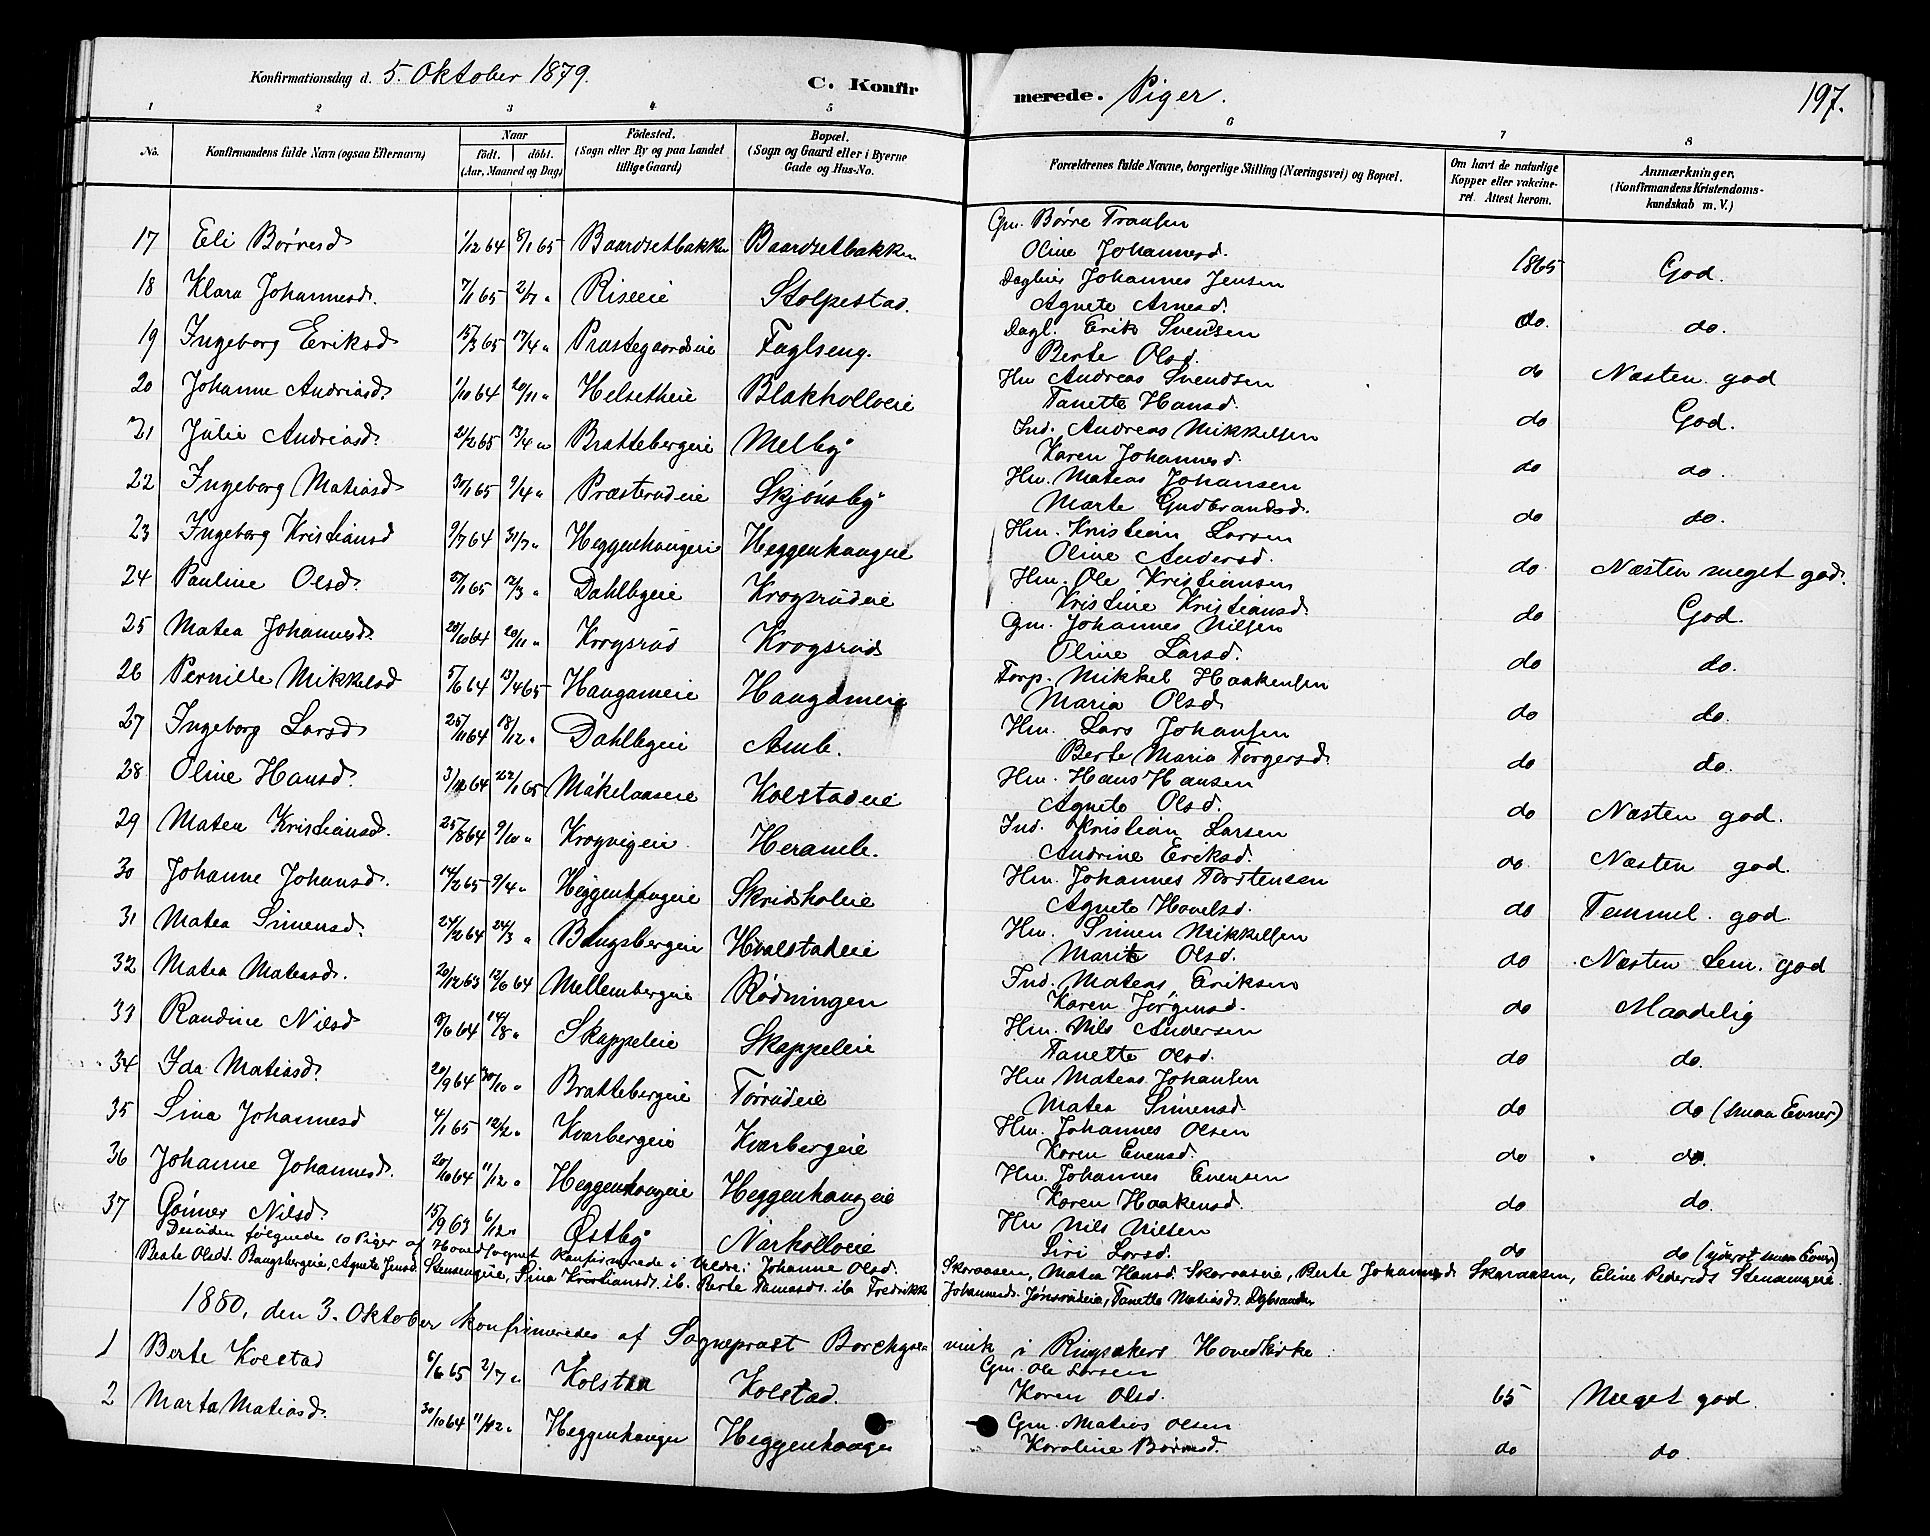 Konfirmationsdag d. 5. Oktober 1879. C. Konfirmerede. Piger. 197.
1 2 3 4 5 6 7 8
No. Konfirmandens fulde Navn (ogsaa Efternavn) Naar født. døbt. (Aar, Maaned og Dag) Fødested. (Sogn eller By og paa Landet tillige Gaard) Bopæl. (Sogn og Gaard eller i Byerne Gade og Hus-No. Forældrenes fulde Navne, borgerlige Stilling (Næringsvei) og Bopæl. Om havt de naturlige Kopper eller vakcineret. Attest herom. Anmærkninger. (Konfirmandens Kristendomskundskab m. V.)
17 Eli Børresd 1/12 64 8/1 65 Baardsetbakken Baardsetbakken Gm. Børre Fransen
Oline Johannesd. 1865 God.
18 Klara Johannesd. 7/1 65 2/7 " Riseeie Stolpestad. Dagleier Johannes Jensen
Agnete Arnesd. do. do.
19 Ingeborg Eriksd 15/3 65 17/4 " Præstegaardseie Faglseng. Dagl. Erik Svendsen
Berte Olsd. do Næsten god
20 Johanne Andreasd. 1/10 64 20/11 " Helsetheie Blakholloeie Hm Andreas Svendsen
Tanette Hansd. do God.
21 Julie Andreasd. 21/2 65 17/4 " Brattebergeie Melby Ind. Andreas Mikkelsen
Karen Johannesd. do do.
22 Ingeborg Matiasd 30/1 65 9/4 " Præsterudeie Skjønsby Hm. Mateas Johansen
Marte Gudbrandsd. do do.
23 Ingeborg Kristiansd 9/7 64 31/7 " Heggenhaugeie Heggenhaugeie Hm. Kristian Larsen
Oline Andersd. do Næsten meget god.
24 Pauline Olsd. 27/1 65 12/3 " Dahlbyeie Krogsrudeie Hm. Ole Kristiansen
Kristine Kristiansd. do God.
25 Matea Johannesd. 20/10 64 20/11 " Krogsrud Krogsrud Gm. Johannes Nilsen
Oline Larsd. do do.
26 Pernille Mikkelsd 5/6 64 13/4 65 Haugameie Haugameie Torp. Mikkel Haakensen
Maria Olsd do do.
27 Ingeborg Larsd 25/11 64 18/12 " Dahlbyeie Amb. Hm. Lars Johansen
Berte Maria Torgersd. do do.
28 Oline Hansd. 3/12 64 22/1 65 Mækelaaseie Kolstadeie Hm. Hans Hansen
Agnete Olsd. do Næsten god.
29 Matea Kristiansd. 25/8 64 9/10 " Krogvigeie Heramb. Ind. Kristian Larsen
Andrine Eriksd. do Næsten god
30 Johanne Johansd. 14/2 65 9/4 " Heggenhaugeie Skridsholeie Hm. Johannes Torstensen
Agnete Hovelsd. do Temmel. god
31 Matea Simensd. 24/2 64 24/3 " Bangsbergeie Hvalstadeie Hm. Simen Mikkelsen
Marit Olsd. do Næsten tem. god
32 Matea Mateasd. 20/12 63 12/6 64 Mellembergeie Rødningen Ind. Mateas Eriksen
Karen Jørgensd. do Maadelig
33 Randine Nilsd 8/6 64 14/8 " Skappeleie Skappeleie Hm. Nils Andersen
Tanette Olsd. do do.
34 Ida Matiasd. 20/9 64 30/10 " Brattebergeie Tørrudeie Hm Mateas Johansen
Matea Simensd. do do (smaa Evner)
35 Sina Johannesd 4/1 65 12/2 " Kvarbergeie Kvarbergeie Hm. Johannes Olsen
Karen Evensd. do do.
36 Johanne Johannesd. 20/10 64 11/12 " Heggenhaugeie Heggenhaugeie Hm. Johannes Evensen
Karen Haakensd. do do.
37 Gønner Nilsd. 15/9 63 6/12 " Østby Narkolloeie Hm Nils Nilsen
Siri Larsd. do do (yderst smaa Evner)
Desuden følgende 10 Piger af Hovedsognet konfirmerede i Veldre: Johanne Olsd. Skaraasen, Matea Hansd. Skaraaseie, Berte Johannesd. Skaraasen, Eline Pedersd. Stensengeie
Beate Olsdt. Bangsbergeie, Agnete Jensd. Stensengeie, Sina Kristiansd. ib. Berte Tomasd. ib Fredrikke Johannesd. Jønsrudeie, Tanette Matiasd.
1880, den 3. Oktober konfirmeredes af Sogneprest Borchgrevink i Ringsakers Hovedkirke
1 Berte Kolstad 6/6 65 2/7 " Kolstad Kolstad. Gm. Ole Larsen
Karen Olsd. 65 Meget god.
2 Marta Matiasd. 30/10 64 11/12 " Heggenhaugen Heggenhaugen Gm. Mateas Olsen
Karoline Børresd. do do.